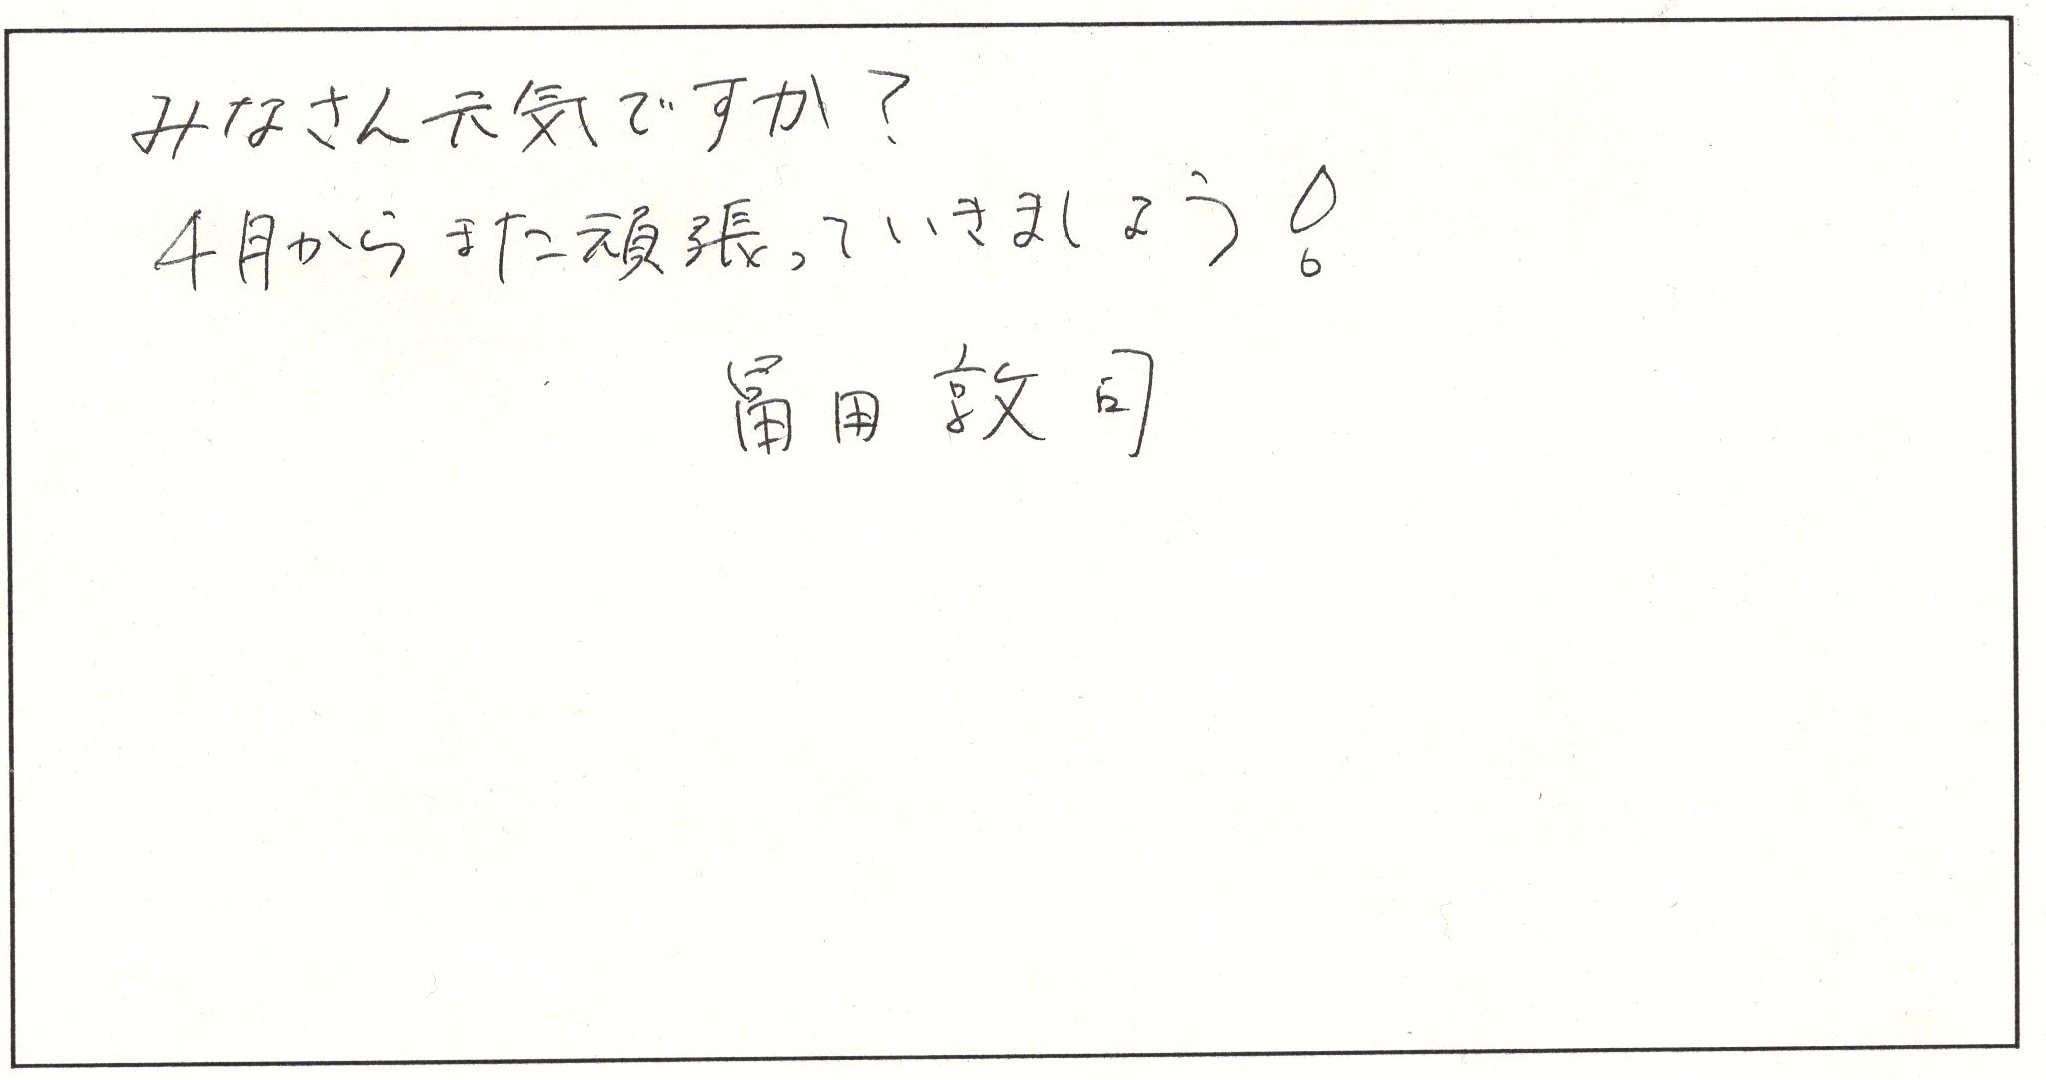 みなさん元気ですか？
4月からまた頑張っていきましょう！
冨田敦司